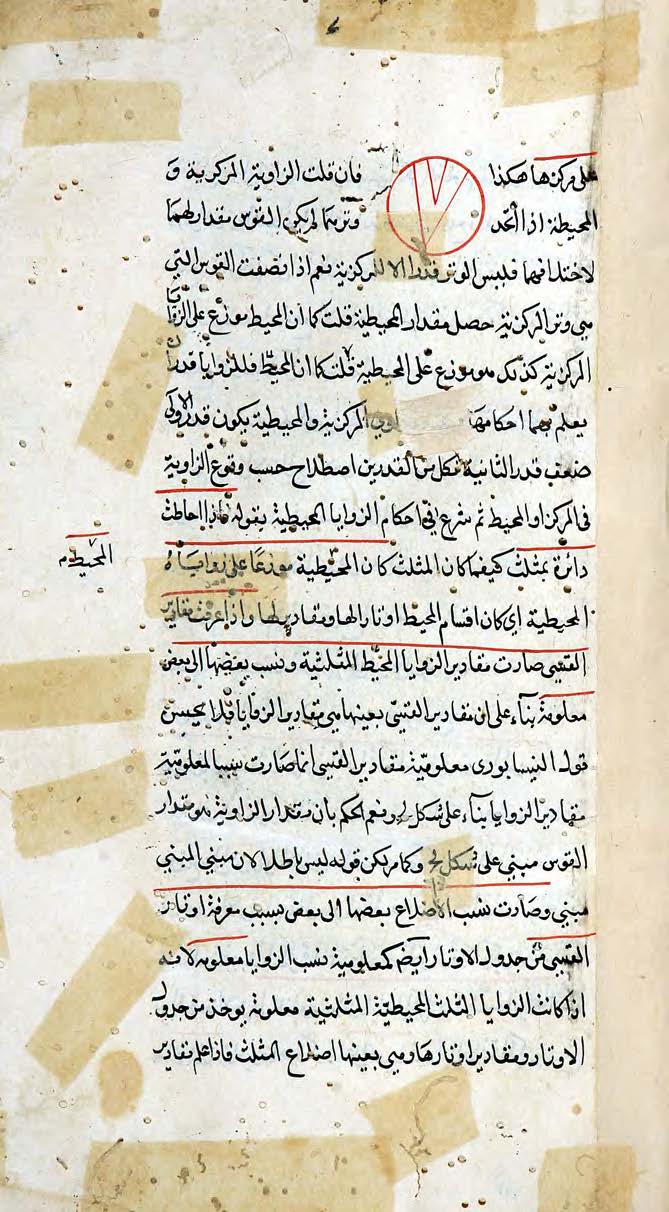 على مركزها هكذا فان قلت الزاوية المركزية و
المحيطة اذا اتحد وترهما لم يكن القوس مقدار لهما
لاختلافهما فليس الوتر قدرا الا للمركزية نعم اذا نصفت القوس التي
هي وتر المركزية حصل مقدار المحيطية قلت كما ان المحيط موزع على الزوايا
المركزية كذلك هو موزع على المحيطية قلت كما ان المحيط فللزوايا قدرا
يعلم بهما احكامها المركزية والمحيطية يكون قدر الاولى
ضعف قدر الثانية فكل من القدرين اصطلاح حسب وقوع الزاوية
في المركز او المحيط ثم شرع في احكام الزوايا المحيطية بقوله فاذا احاطت
دائرة بمثلث كيفما كان المثلث كان المحيطية موزعا على زواياه
المحيط م
المحيطية اي كان اقسام المحيط اوتارا لها ومقادير لها واذا عرفت مقادير
القسي صارت مقادير الزوايا المحيط المثلثية ونسب بعضها الى بعض
معلومة بناء على ان مقادير القسي بعينها هي مقادير الزوايا فلا يحسن
قول النيسابوري معلومية مقادير القسي انما صارت سببا لمعلومية
مقادير الزوايا بناء على شكل لو ونعم الحكم بان مقدار الزاوية هو مقدار
القوس مبني على شكل لح وكما مر يكن قوله ليس باطلا لان مبني المبني
مبني وصارت نسب الاضلاع بعضها الى بعض بسبب معرفة اوتار
القسي من جدول الاوتار ايضا كمعلومية نسب الزوايا معلومة لانه
اذا كانت الزوايا المثلث المحيطية المثلثية معلومة يوخذ من جدول
الاوتار ومقادير اوتارها وهي بعينها اضلاع المثلث فاذا علم مقادير